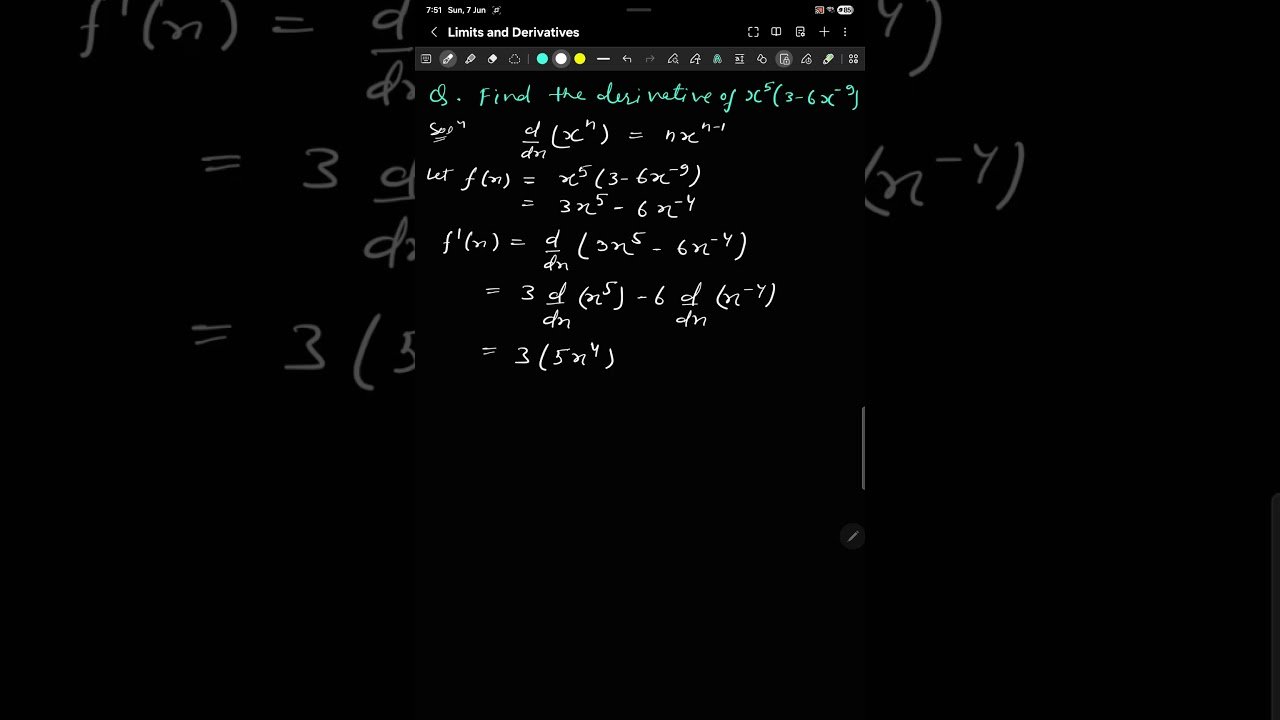 7:51 Sun, 7 Jun 85
Limits and Derivatives
Q. Find the derivative of x⁵(3-6x⁻⁹)
Solⁿ d/dx (xⁿ) = nxⁿ⁻¹
Let f(x) = x⁵(3-6x⁻⁹)
= 3x⁵ - 6x⁻⁴
f'(x) = d/dx (3x⁵ - 6x⁻⁴)
= 3 d/dx (x⁵) - 6 d/dx (x⁻⁴)
= 3(5x⁴)